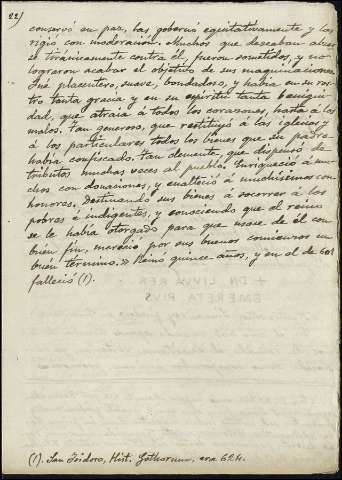 22)
conservó en paz, las gobernó equitativamente y las
rigió con moderación. Muchos que deseaban alzar-
se tiránicamente contra él, fueron sometidos, y no
lograron acabar el objetivo de sus maquinaciones.
Fué placentero, suave, bondadoso, y había en su ros-
tro tanta gracia y en su espíritu tanta benigni-
dad, que atraia á todos los corazones, hasta á los
malos. Tan generoso, que restituyó á las iglesias y
á los particulares todos los bienes que su padre
había confiscado. Tan clemente, que dispensó de
tributos muchas veces al pueblo. Enriqueció á mu-
chos con donaciones, y enalteció á muchísimos con
honores. Destinando sus bienes á socorrer á los
pobres é indigentes, y conociendo que el reino
se le había otorgado para que usase de él con
buén fin, mereció por sus buenos comienzos un
buén término.» Reinó quince años, y en el de 601
falleció (1).
+ DN LIVVA REX
EMERETA PIVS
(1). San Isidoro, Hist. Gothorum. era 624.